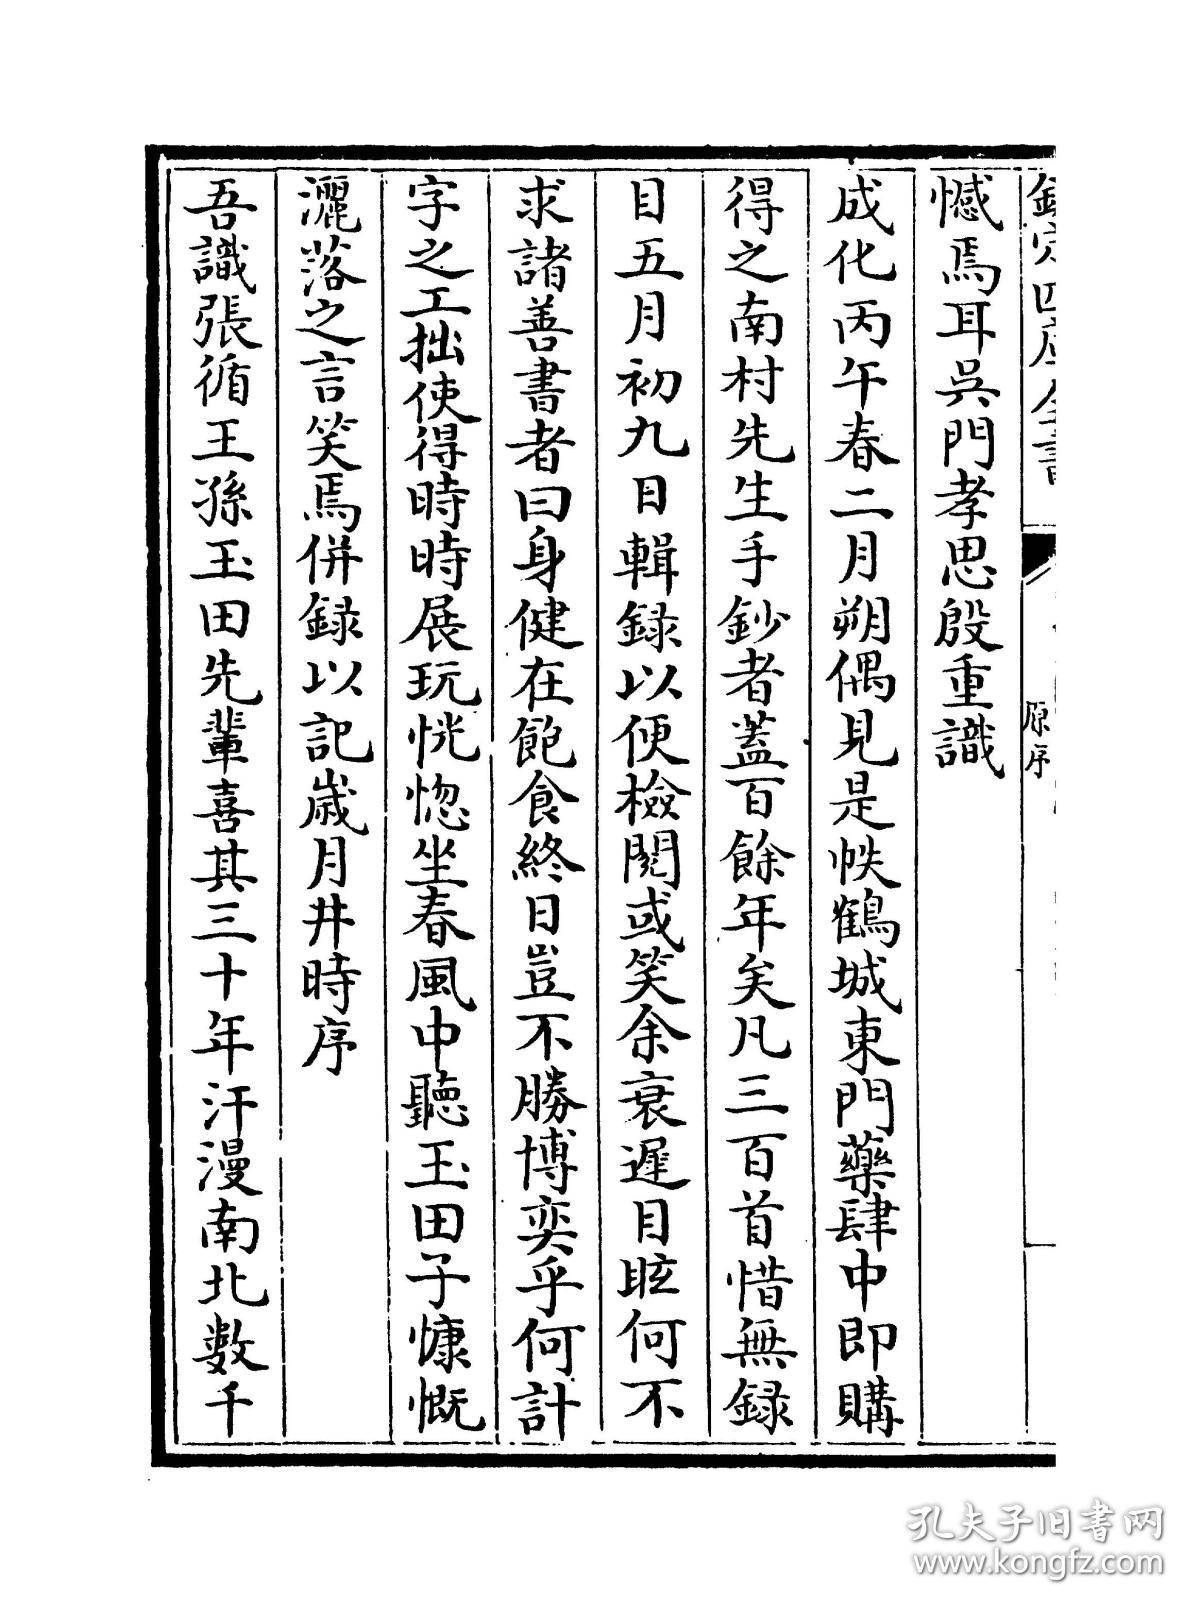 欽定四庫全書
原序
憾焉耳吳門孝思殷重識
成化丙午春二月朔偶見是帙鶴城東門藥肆中即購
得之南村先生手鈔者蓋百餘年矣凡三百首惜無錄
目五月初九日輯錄以便檢閱或笑余衰遲目眩何不
求諸善書者曰身健在飽食終日豈不勝博奕乎何計
字之工拙使得時時展玩恍惚坐春風中聽玉田子慷慨
灑落之言笑焉併錄以記歲月井時序
吾識張循王孫玉田先輩喜其三十年汗漫南北數千
孔夫子旧书网
www.kongfz.com